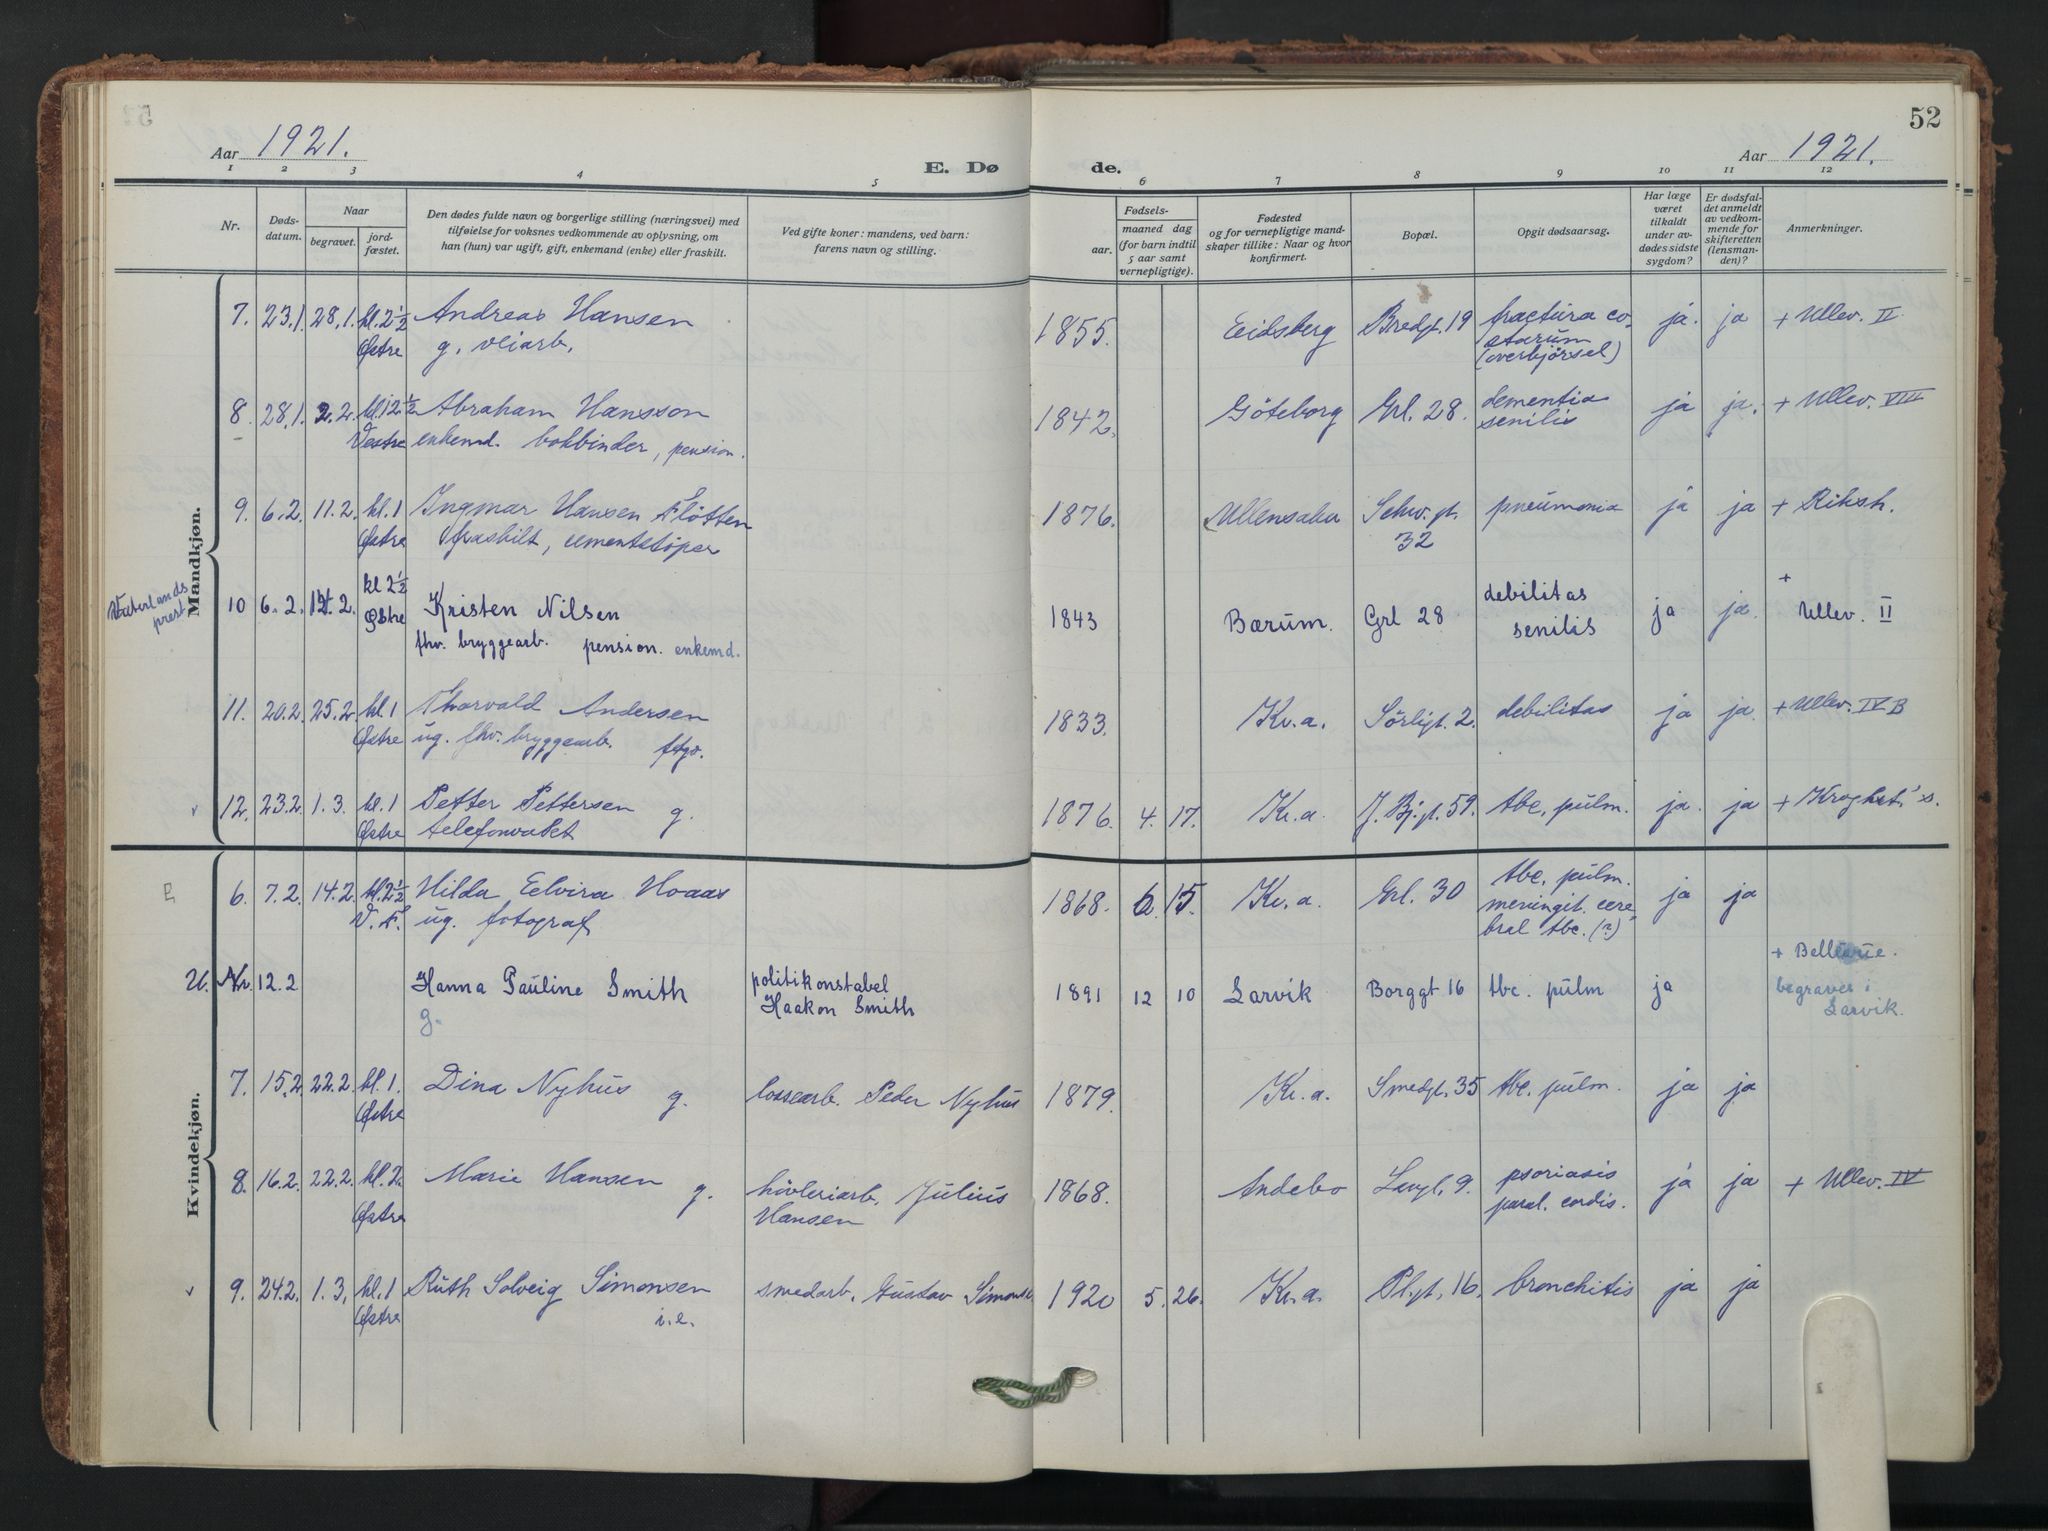 52
Aar 1921.
E. Dø de.
Aar 1921.
1 2 3 4 5 6 7 8 9 10 11 12
Nr.
Døds-
datum.
Naar
begravet.
jord-
fæstet.
Den dødes fulde navn og borgerlige stilling (næringsvei) med
tilføielse for voksnes vedkommende av oplysning, om
han (hun) var ugift, gift, enkemand (enke) eller fraskilt.
Ved gifte koner: mandens, ved barn:
farens navn og stilling.
Fødsels-
aar.
maaned dag
(for barn indtil
5 aar samt
vernepligtige).
Fødested
og for vernepligtige mand-
skaper tillike: Naar og hvor
konfirmert.
Bopæl.
Opgit dødsaarsag.
Har læge
været
tilkaldt
under av-
dødes sidste
sygdom?
Er dødsfal-
det anmeldt
av vedkom-
mende for
skifteretten
(lensman-
den)?
Anmerkninger.
Mandkjøn.
7. 23.1. 28.1. kl. 2½ Andreas Hansen 1855. Eidsberg Bredgt. 19 fractura co- ja. ja + Ullev. II
Østre g. veiarb. starum
(overkjørsel)
8. 28.1. 2.2. kl. 12½ Abraham Hansson 1842. Göteborg Grl. 28. dementia ja ja. + Ullev. VIII
Vestre enkemd. bokbinder, pension. senilis
9. 6.2. 11.2. kl. 1 Ingmar Hansen Fløtten 1876. Ullensaker Schw. gt. pneumonia ja ja + Riksh.
Østre fraskilt, cementstøper 32
Vaterlands
prest
10 6.2. 12.2. kl 2½ Kristen Nilsen 1843 Bærum. Grl 28 debilitas ja ja. + Ullev. II
Østre fhv. bryggearb. pension. enkemd. senilis
11. 20.2. 25.2 kl. 1 Thorvald Andersen 1833. Kr.a. Sörligt. 2. debilitas ja ja. + Ullev. IV B
Østre ug. fhv. bryggearb. ftgv.
12. 23.2. 1.3. kl. 1 Petter Pettersen g. 1876. 4. 17. Kr.a. J. Bj. gt. 59. tbc. pulm. ja. ja + Kroghst.'s.
Østre telefonvakt
Kvindekjøn.
6. 7.2. 14.2. kl. 2½ Hilda Elvira Hoaas 1868. 6. 15. Kr.a. Grl. 30 tbc. pulm. ja ja
V. K. ug. fotograf meningit. cere-
bral tbc. (?)
U. Nr. 12.2 Hanna Pauline Smith politikonstabel 1891 12 10 Larvik Borggt 16 tbc. pulm ja + Bellevue.
g. Haakon Smith begraves i
Larvik.
7. 15.2. 22.2. kl. 1. Dina Nyhus g. lossearb. Peder Nyhus 1879. Kr.a. Smedgt. 35 tbc. pulm. ja ja
Østre
8. 16.2. 22.2. kl. 2. Marie Hansen g. høvleriarb. Julius 1868. Andebo Langl. 9. psoriasis ja ja + Ullev. IV
Østre Hansen paral. cordis.
9. 24.2. 1.3. kl. 1 Ruth Solveig Simonsen smedarb. Gustav Simonsen 1920 5. 26. Kr.a. Pl.gt. 16. bronchitis ja ja
Østre i.e.